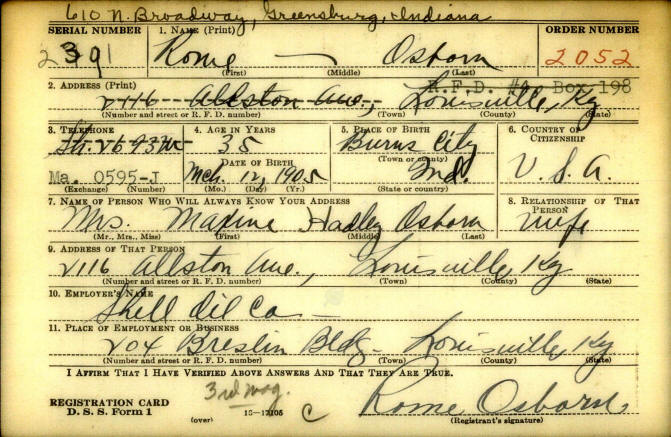 610 N. Broadway, Greensburg, Indiana
SERIAL NUMBER 1. NAME (Print) ORDER NUMBER
2391 Rome — Osborn 2052
(First) (Middle) (Last)
2. ADDRESS (Print) R.F.D. #4, Box 198
2116 Allston Ave., Louisville, Ky
(Number and street or R. F. D. number) (Town) (County) (State)
3. TELEPHONE 4. AGE IN YEARS 5. PLACE OF BIRTH 6. COUNTRY OF CITIZENSHIP
35 Burns City
DATE OF BIRTH (Town or county)
Ma. 0595-J Mch. 12, 1905 Ind. U. S. A.
(Exchange) (Number) (Mo.) (Day) (Yr.) (State or country)
7. NAME OF PERSON WHO WILL ALWAYS KNOW YOUR ADDRESS 8. RELATIONSHIP OF THAT PERSON
Mrs. Maxine Hadley Osborn wife
(Mr., Mrs., Miss) (First) (Middle) (Last)
9. ADDRESS OF THAT PERSON
2116 Allston Ave., Louisville, Ky
(Number and street or R. F. D. number) (Town) (County) (State)
10. EMPLOYER'S NAME
Shell Oil Co —
11. PLACE OF EMPLOYMENT OR BUSINESS
204 Breslin Bldg Louisville, Ky
(Number and street or R. F. D. number) (Town) (County) (State)
I AFFIRM THAT I HAVE VERIFIED ABOVE ANSWERS AND THAT THEY ARE TRUE.
3rd mag.
REGISTRATION CARD
D. S. S. Form 1 (over) 16—17105 C Rome Osborn
(Registrant's signature)